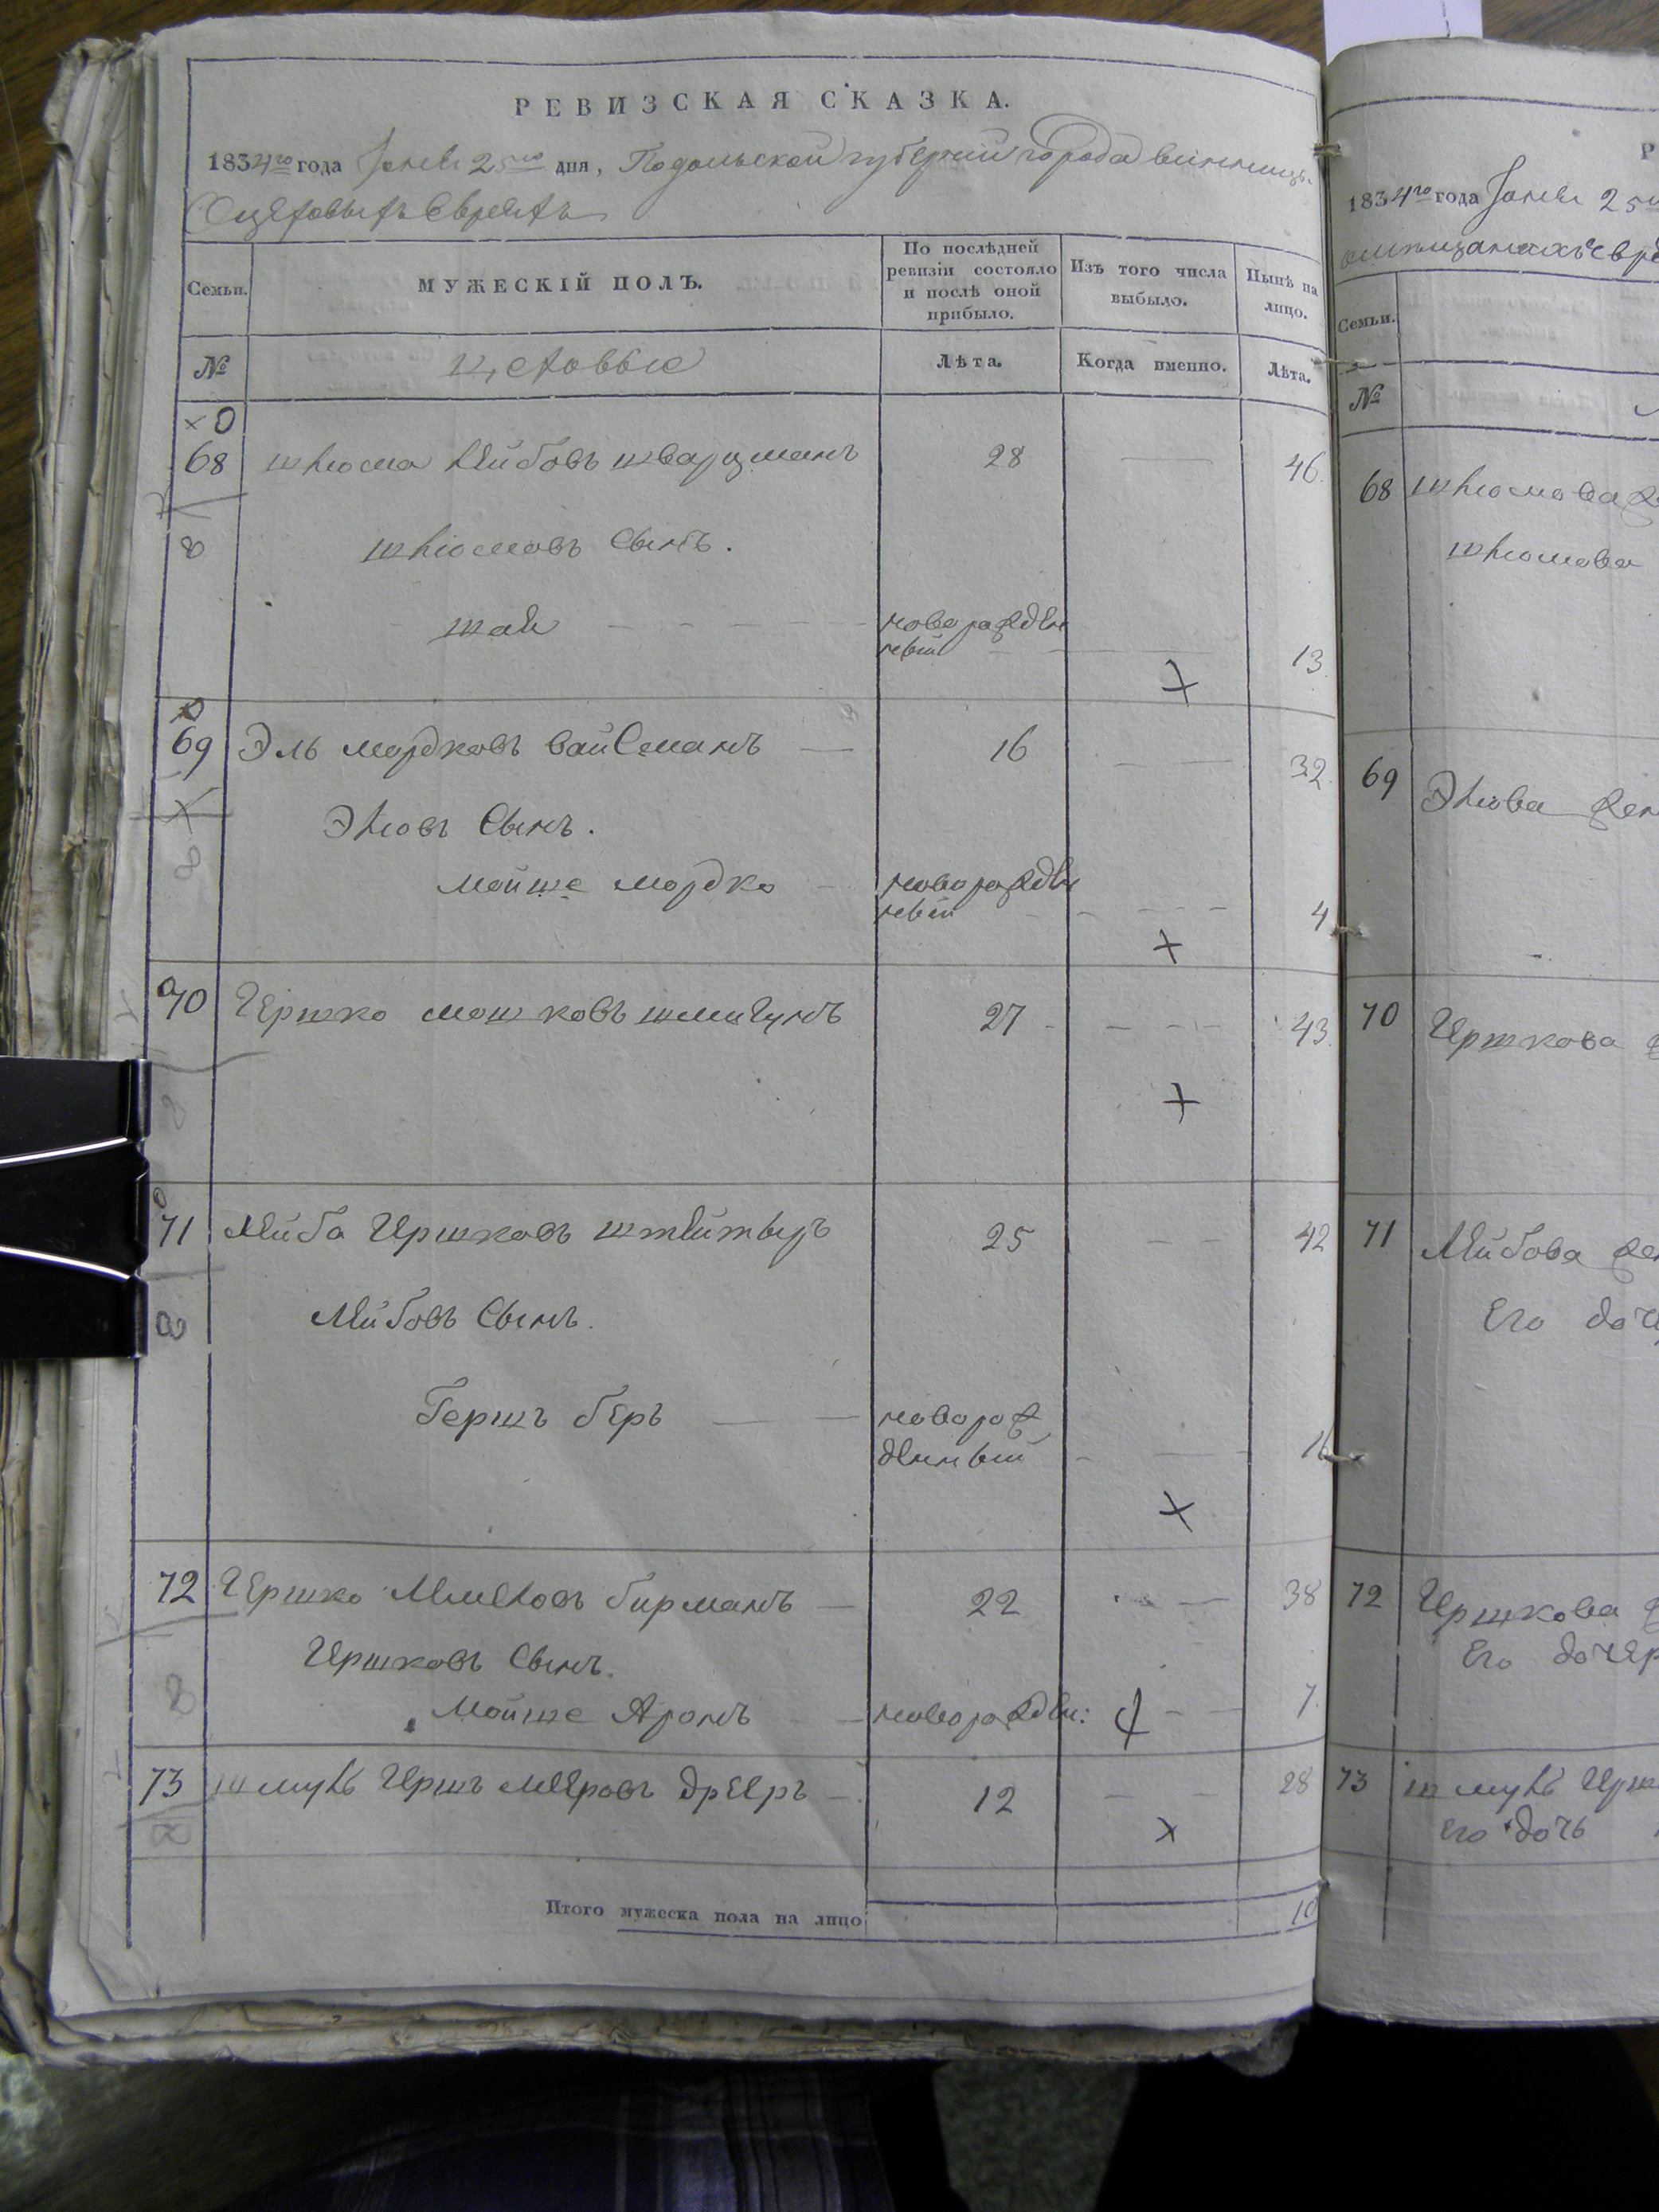 РЕВИЗСКАЯ СКАЗКА.
1834го года Июня 25го дня, Подольской губернии города винницы
Цеховыхъ Евреяхъ
Семьи.
МУЖЕСКІЙ ПОЛЪ.
По послѣдней ревизіи состояло и послѣ оной прибыло.
Изъ того числа выбыло.
Нынѣ на лицо.
№
цеховые
Лѣта.
Когда именно.
Лѣта.
68 шлиома лейбовъ шварцманъ 28 46.
8 шлиомовъ Сынъ.
шая новорожден
ный 13
69 Эль мордковъ вайсманъ 16 32.
Эліовъ Сынъ.
мойше мордко новорожден
ный 4
70 Гершко мошковъ 27 43.
71 Лейба Гершковъ 25 42
Лейбовъ Сынъ.
Гершъ беръ новорож
денный 16
72 Гершко бирманъ 22 38
Гершковъ Сынъ.
Мойше Аронъ новорожден: 7.
73 шмуль Гершъ меировъ 12 28
Итого мужеска пола на лицо 10
Р
1834го года Июня 25го
омѣщанахъ Евре
Семьи.
№
68 шлиомова ж
шлиомова
69 Эліова жен
70 Гершкова ж
71 Лейбова жен
Его доче
72 Гершкова ж
Его дочер
73 шмуль Герш
Его дочь